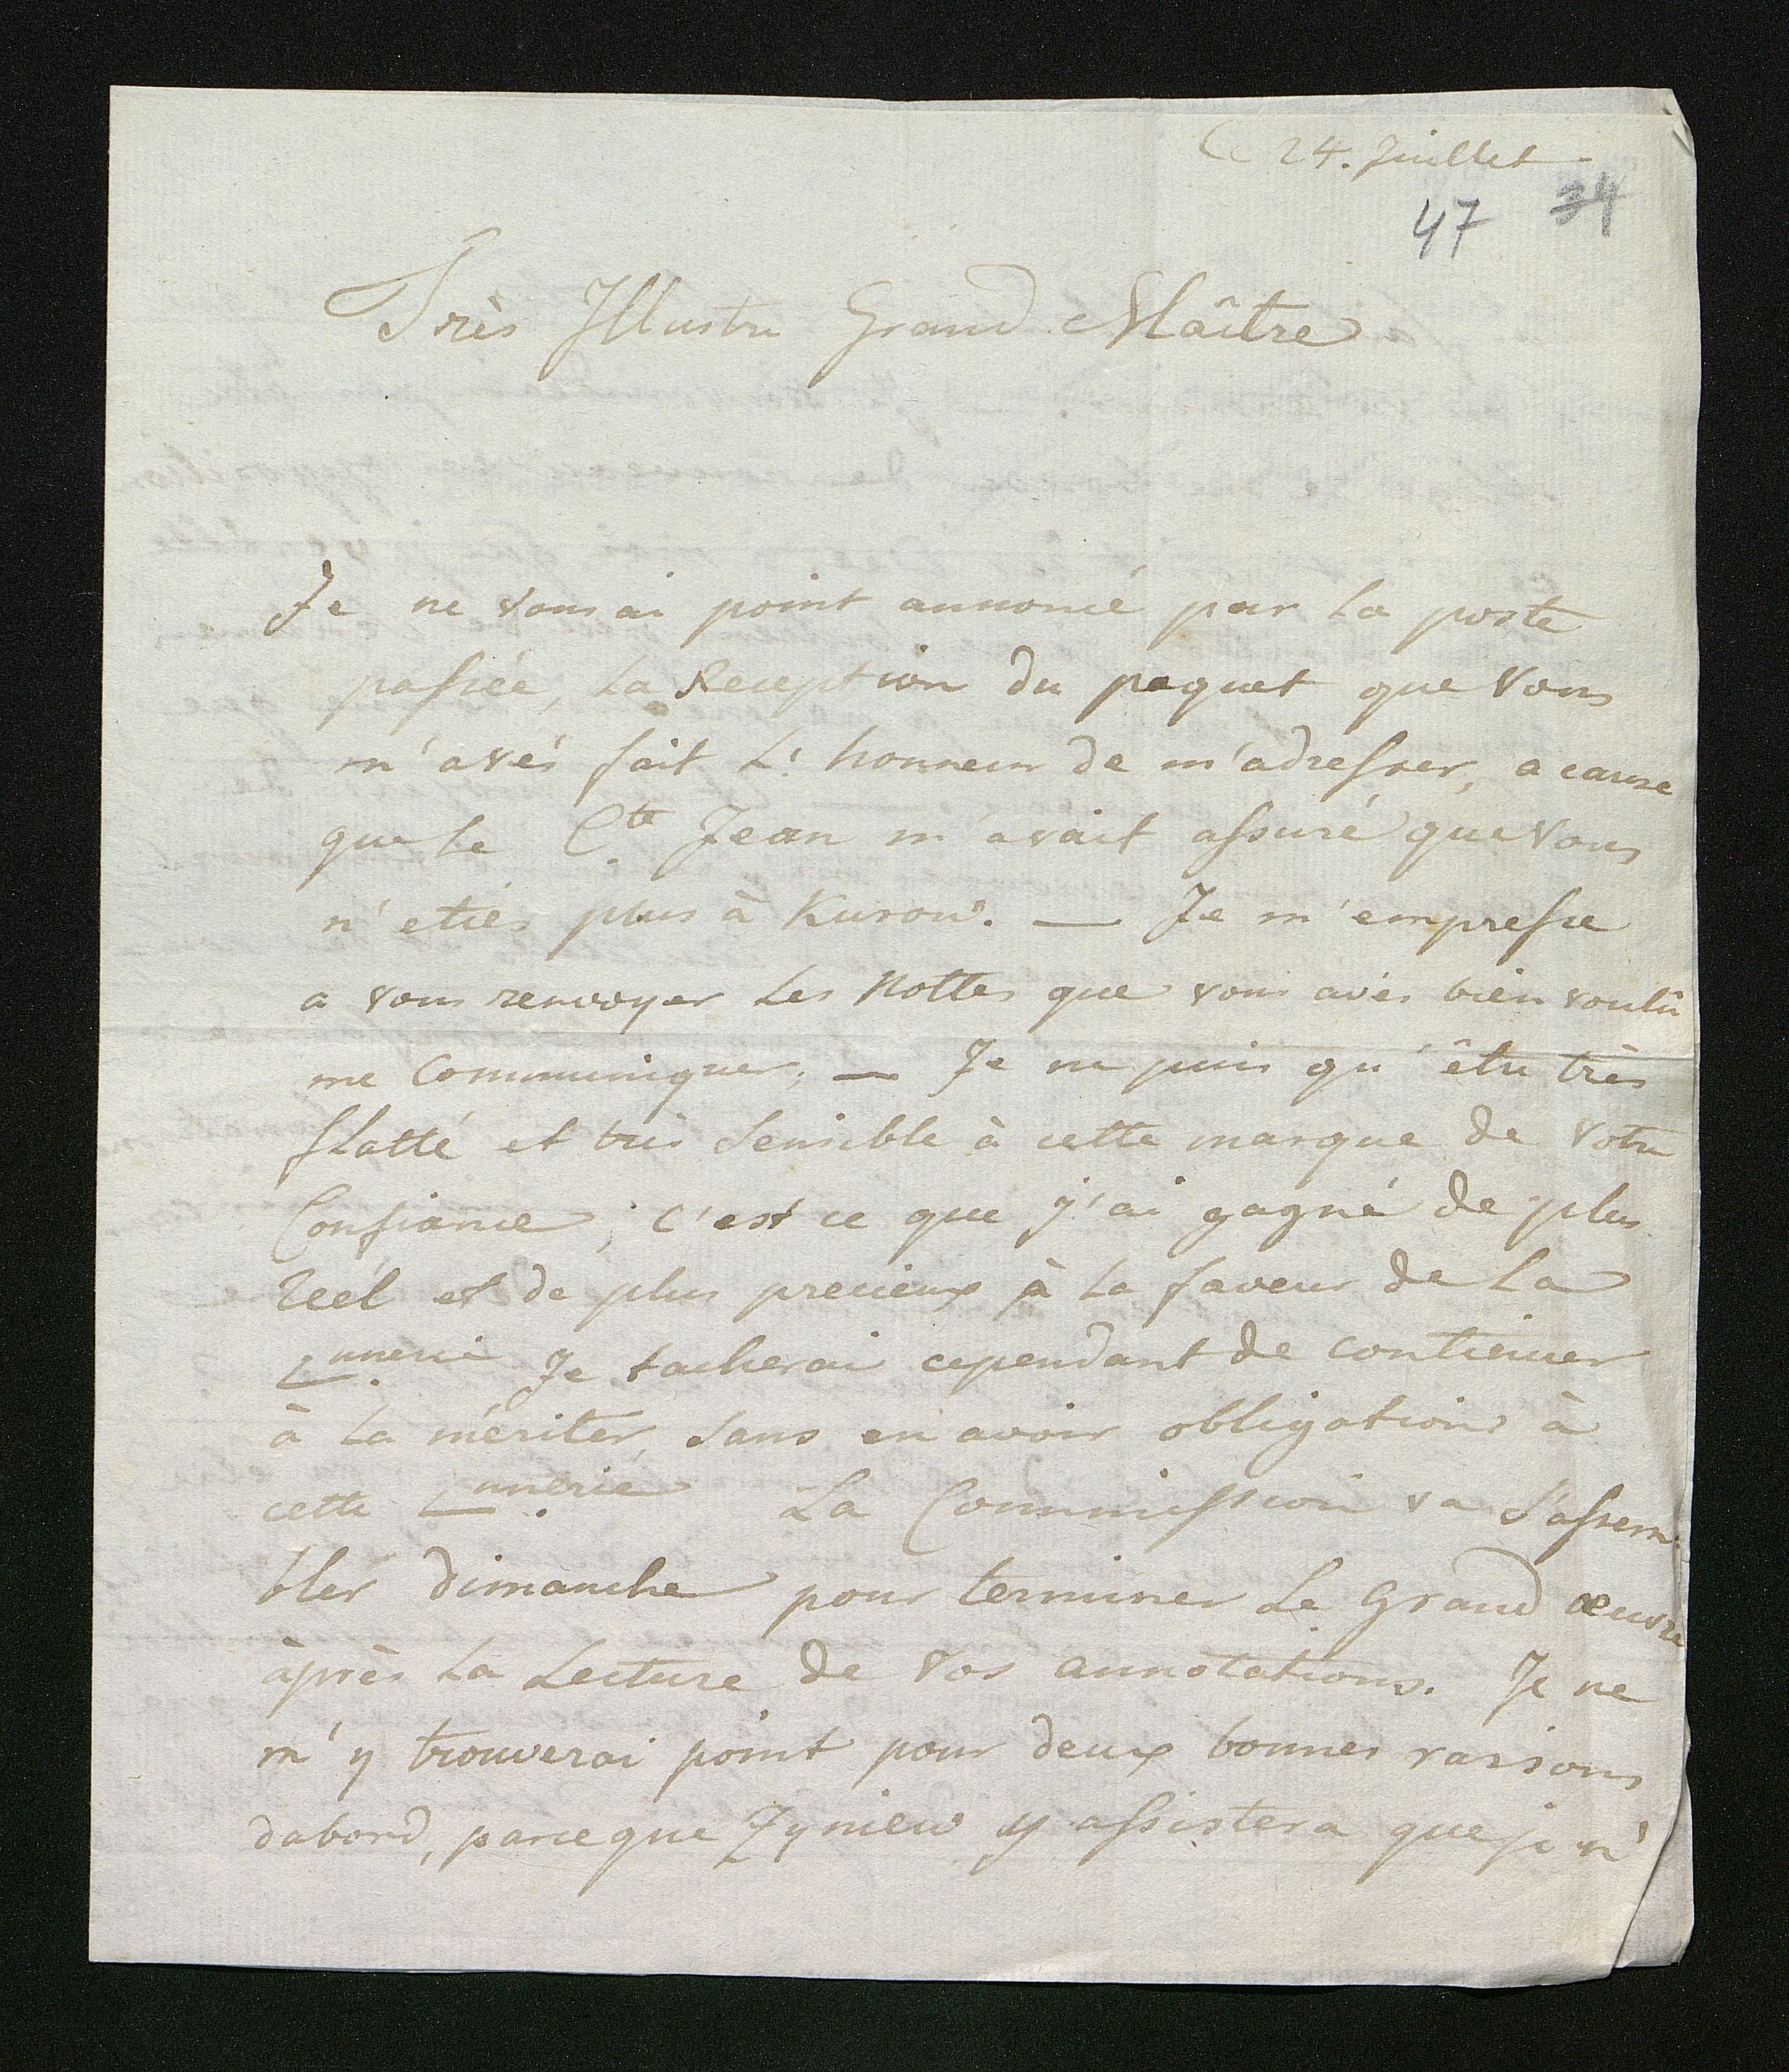 Ce 24. Juillet
47 34
Très Illustre Grand Maître
Je ne vous ai point annoncé par la poste
passée, la Reception du paquet que vous
m'avés fait L'honneur de m'adresser, a cause
que le C.te Jean m'avait assuré que vous
n'etiés plus à Kurow. — Je m'empresse
a vous renvoyer les Nottes que vous avés bien voulû
me Communiquer; — Je ne puis qu'être très
flatté et très sensible à cette marque de votre
Confiance; c'est ce que j'ai gagné de plus
réél et de plus precieux à la faveur de la
nnerie Je tacherai cependant de continuer
à la mériter, sans en avoir obligation à
cette nnerie La Commission va s'assem
bler dimanche pour terminer Le Grand œuvre
àprès la Lecture de vos annotations. Je ne
m'y trouverai point pour deux bonnes raisons
dabord, parceque Zyniew y assistera que je n'